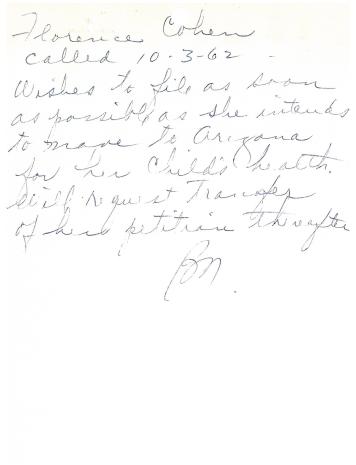 Florence Cohen
called 10-3-62 -
Wishes to file as soon
as possible as she intends
to move to Arizona
for her child's health.
Will request transfer
of her petition thereafter
BM.